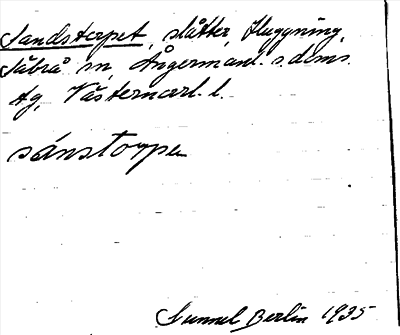 Sandstorpet, slåtter, Huggning,
Säbrå sn, Ångermanl. s. doms.
tg, Västernorrl. l.
sånstorpe
Gunnel Berlin 1935